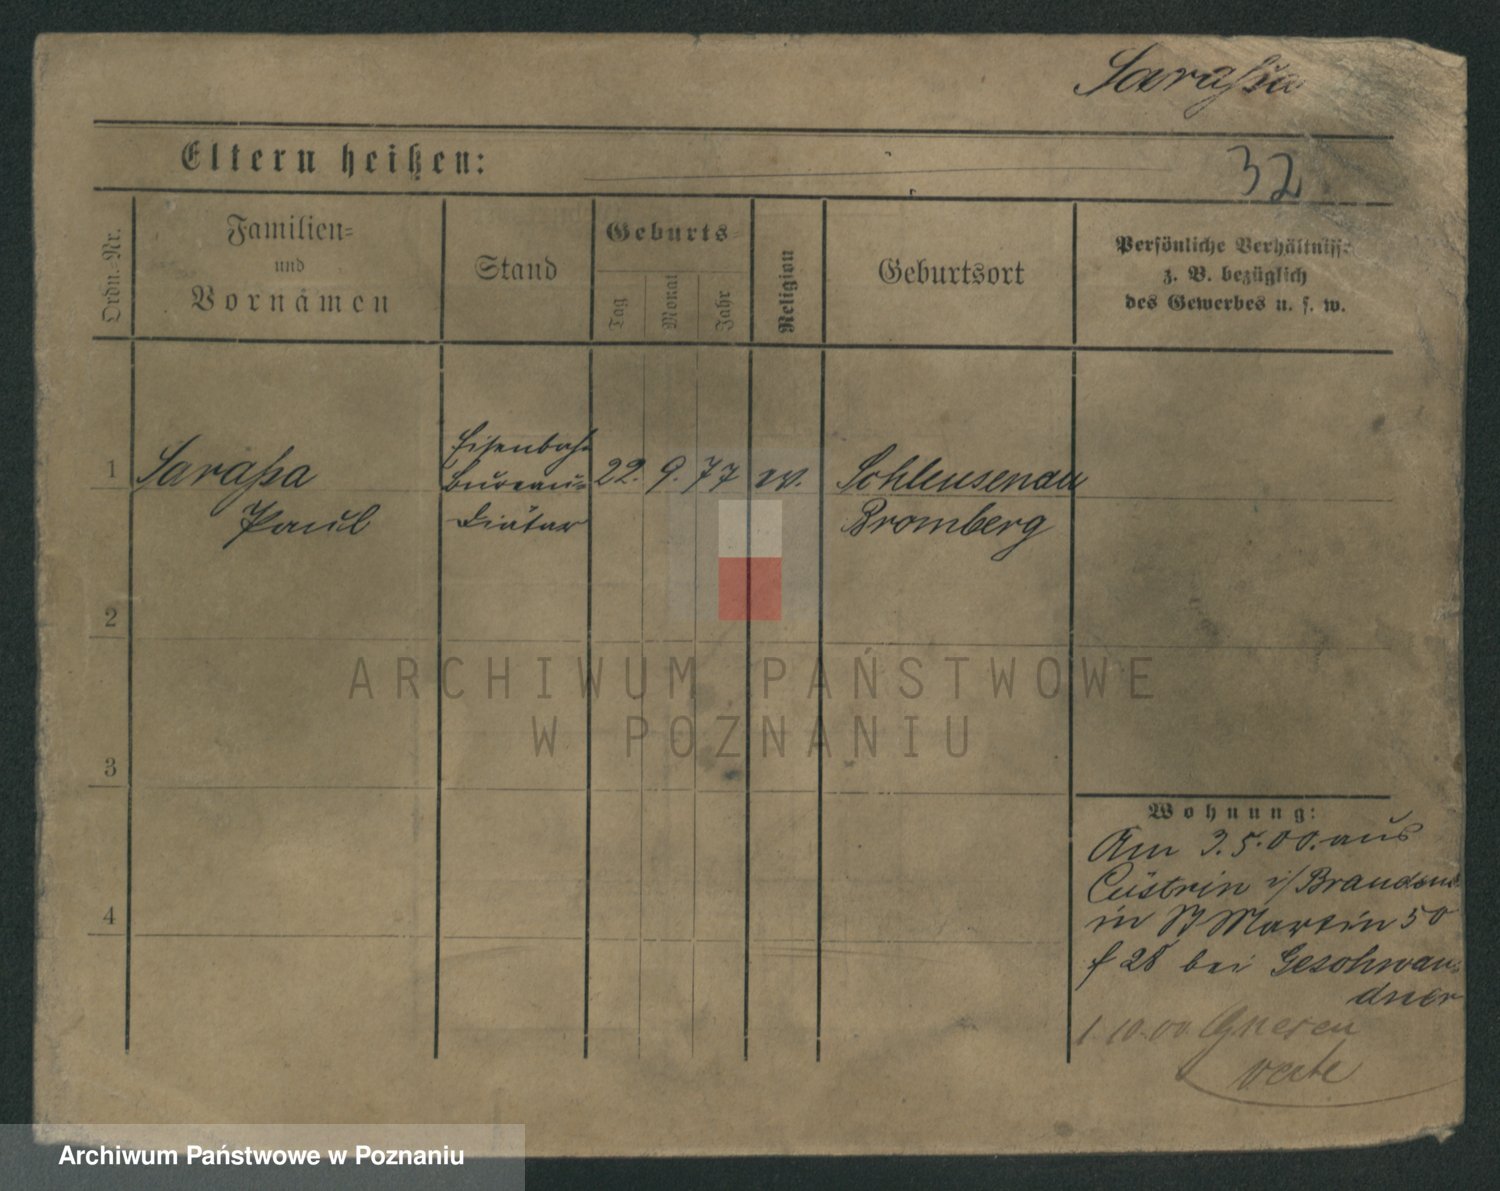 Saraßa
Eltern heißen:
32
Ordn. Nr.
Familien-
und
Vornamen
Stand
Geburts-
Tag
Monat
Jahr
Religion
Geburtsort
Persönliche Verhältnisse
z. B. bezüglich
des Gewerbes u. s. w.
Eisenbahn
1 Saraßa Bureau- 22. 9. 77 ev. Schleusenau
Paul Diätar Bromberg
2
3
4
Wohnung:
Am 3.5.00. aus
Cüstrin i/Brandenb
in St Martin 50
bei Geschwan
dner
1. 10.00 Gnesen
verte
ARCHIWUM PAŃSTWOWE
W POZNANIU
Archiwum Państwowe w Poznaniu